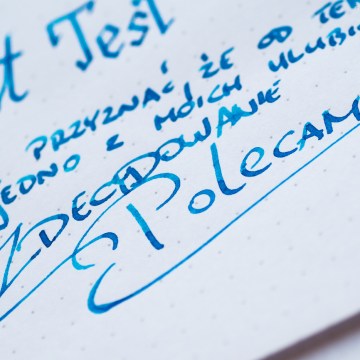 t Test
PRZYZNAĆ, ŻE OD TE
JEDNO Z MOICH ULUBI
ZDECYDOWANIE
Polecam